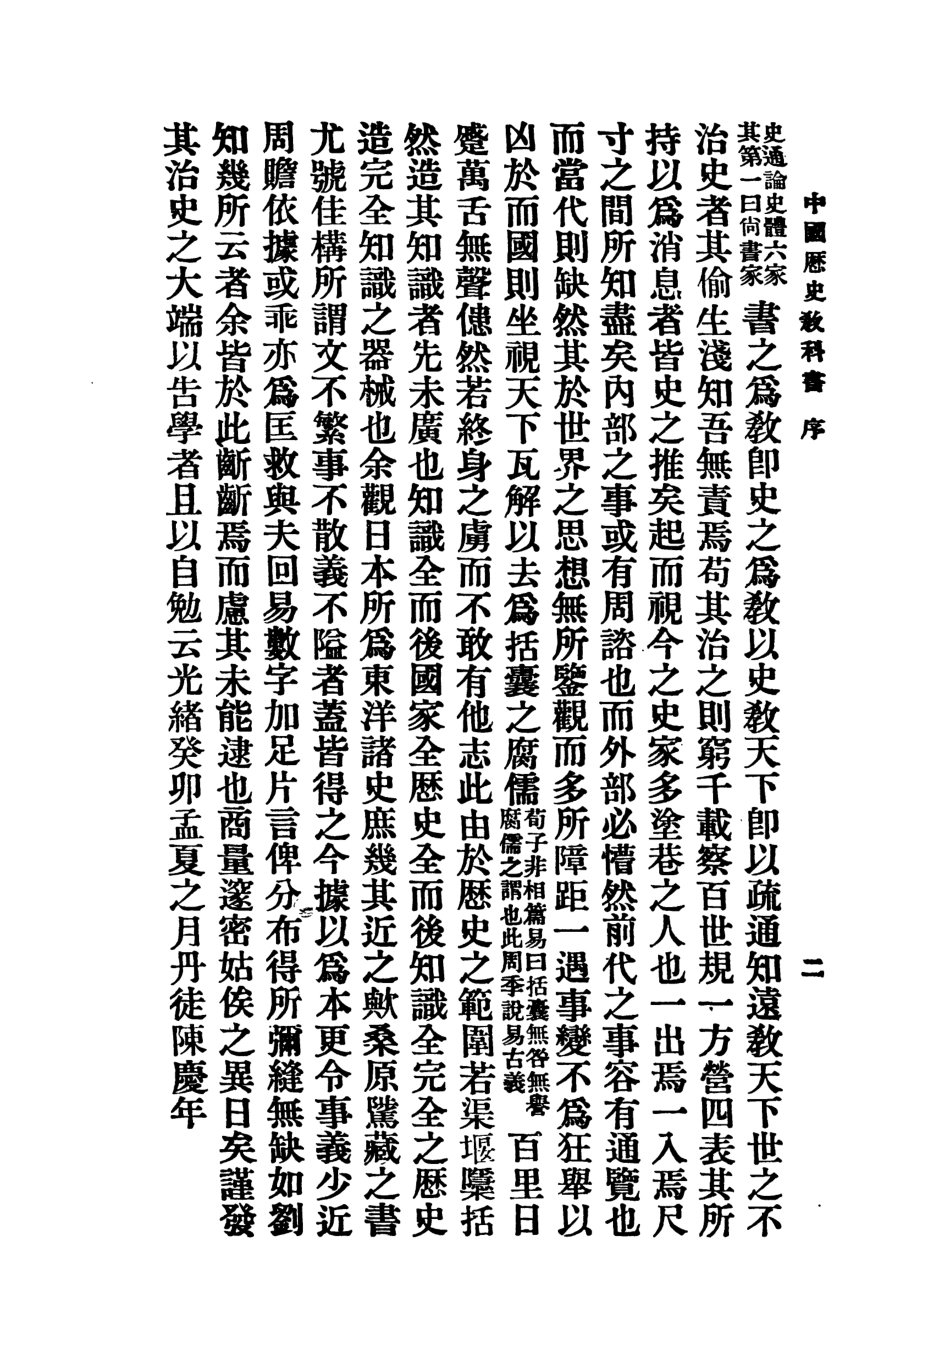 中國歷史教科書 序 二
史通論史體六家其第一曰尙書家 書之爲敎卽史之爲敎以史敎天下卽以疏通知遠敎天下世之不
治史者其偷生淺知吾無責焉苟其治之則窮千載察百世規一方營四表其所
持以爲消息者皆史之推矣起而視今之史家多塗巷之人也一出焉一入焉尺
寸之間所知盡矣內部之事或有周諮也而外部必懵然前代之事容有通覽也
而當代則缺然其於世界之思想無所鑒觀而多所障距一遇事變不爲狂舉以
凶於而國則坐視天下瓦解以去爲括囊之腐儒 荀子非相篇易曰括囊無咎無譽腐儒之謂也此周季說易古義 百里日
蹙萬舌無聲僡然若終身之虜而不敢有他志此由於歷史之範圍若渠堰櫽括
然造其知識者先未廣也知識全而後國家全歷史全而後知識全完全之歷史
造完全知識之器械也余觀日本所爲東洋諸史庶幾其近之歟桑原騭藏之書
尤號佳構所謂文不繁事不散義不隘者蓋皆得之今據以爲本更令事義少近
周贍依據或乖亦爲匡救與夫回易數字加足片言俾分布得所彌縫無缺如劉
知幾所云者余皆於此齗齗焉而慮其未能逮也商量邃密姑俟之異日矣謹發
其治史之大端以吿學者且以自勉云光緒癸卯孟夏之月丹徒陳慶年